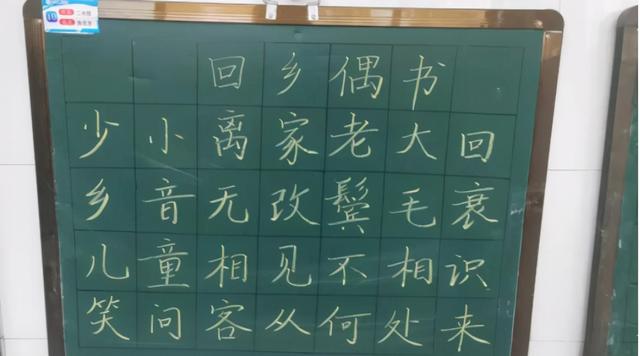 回乡偶书
少小离家老大回
乡音无改鬓毛衰
儿童相见不相识
笑问客从何处来